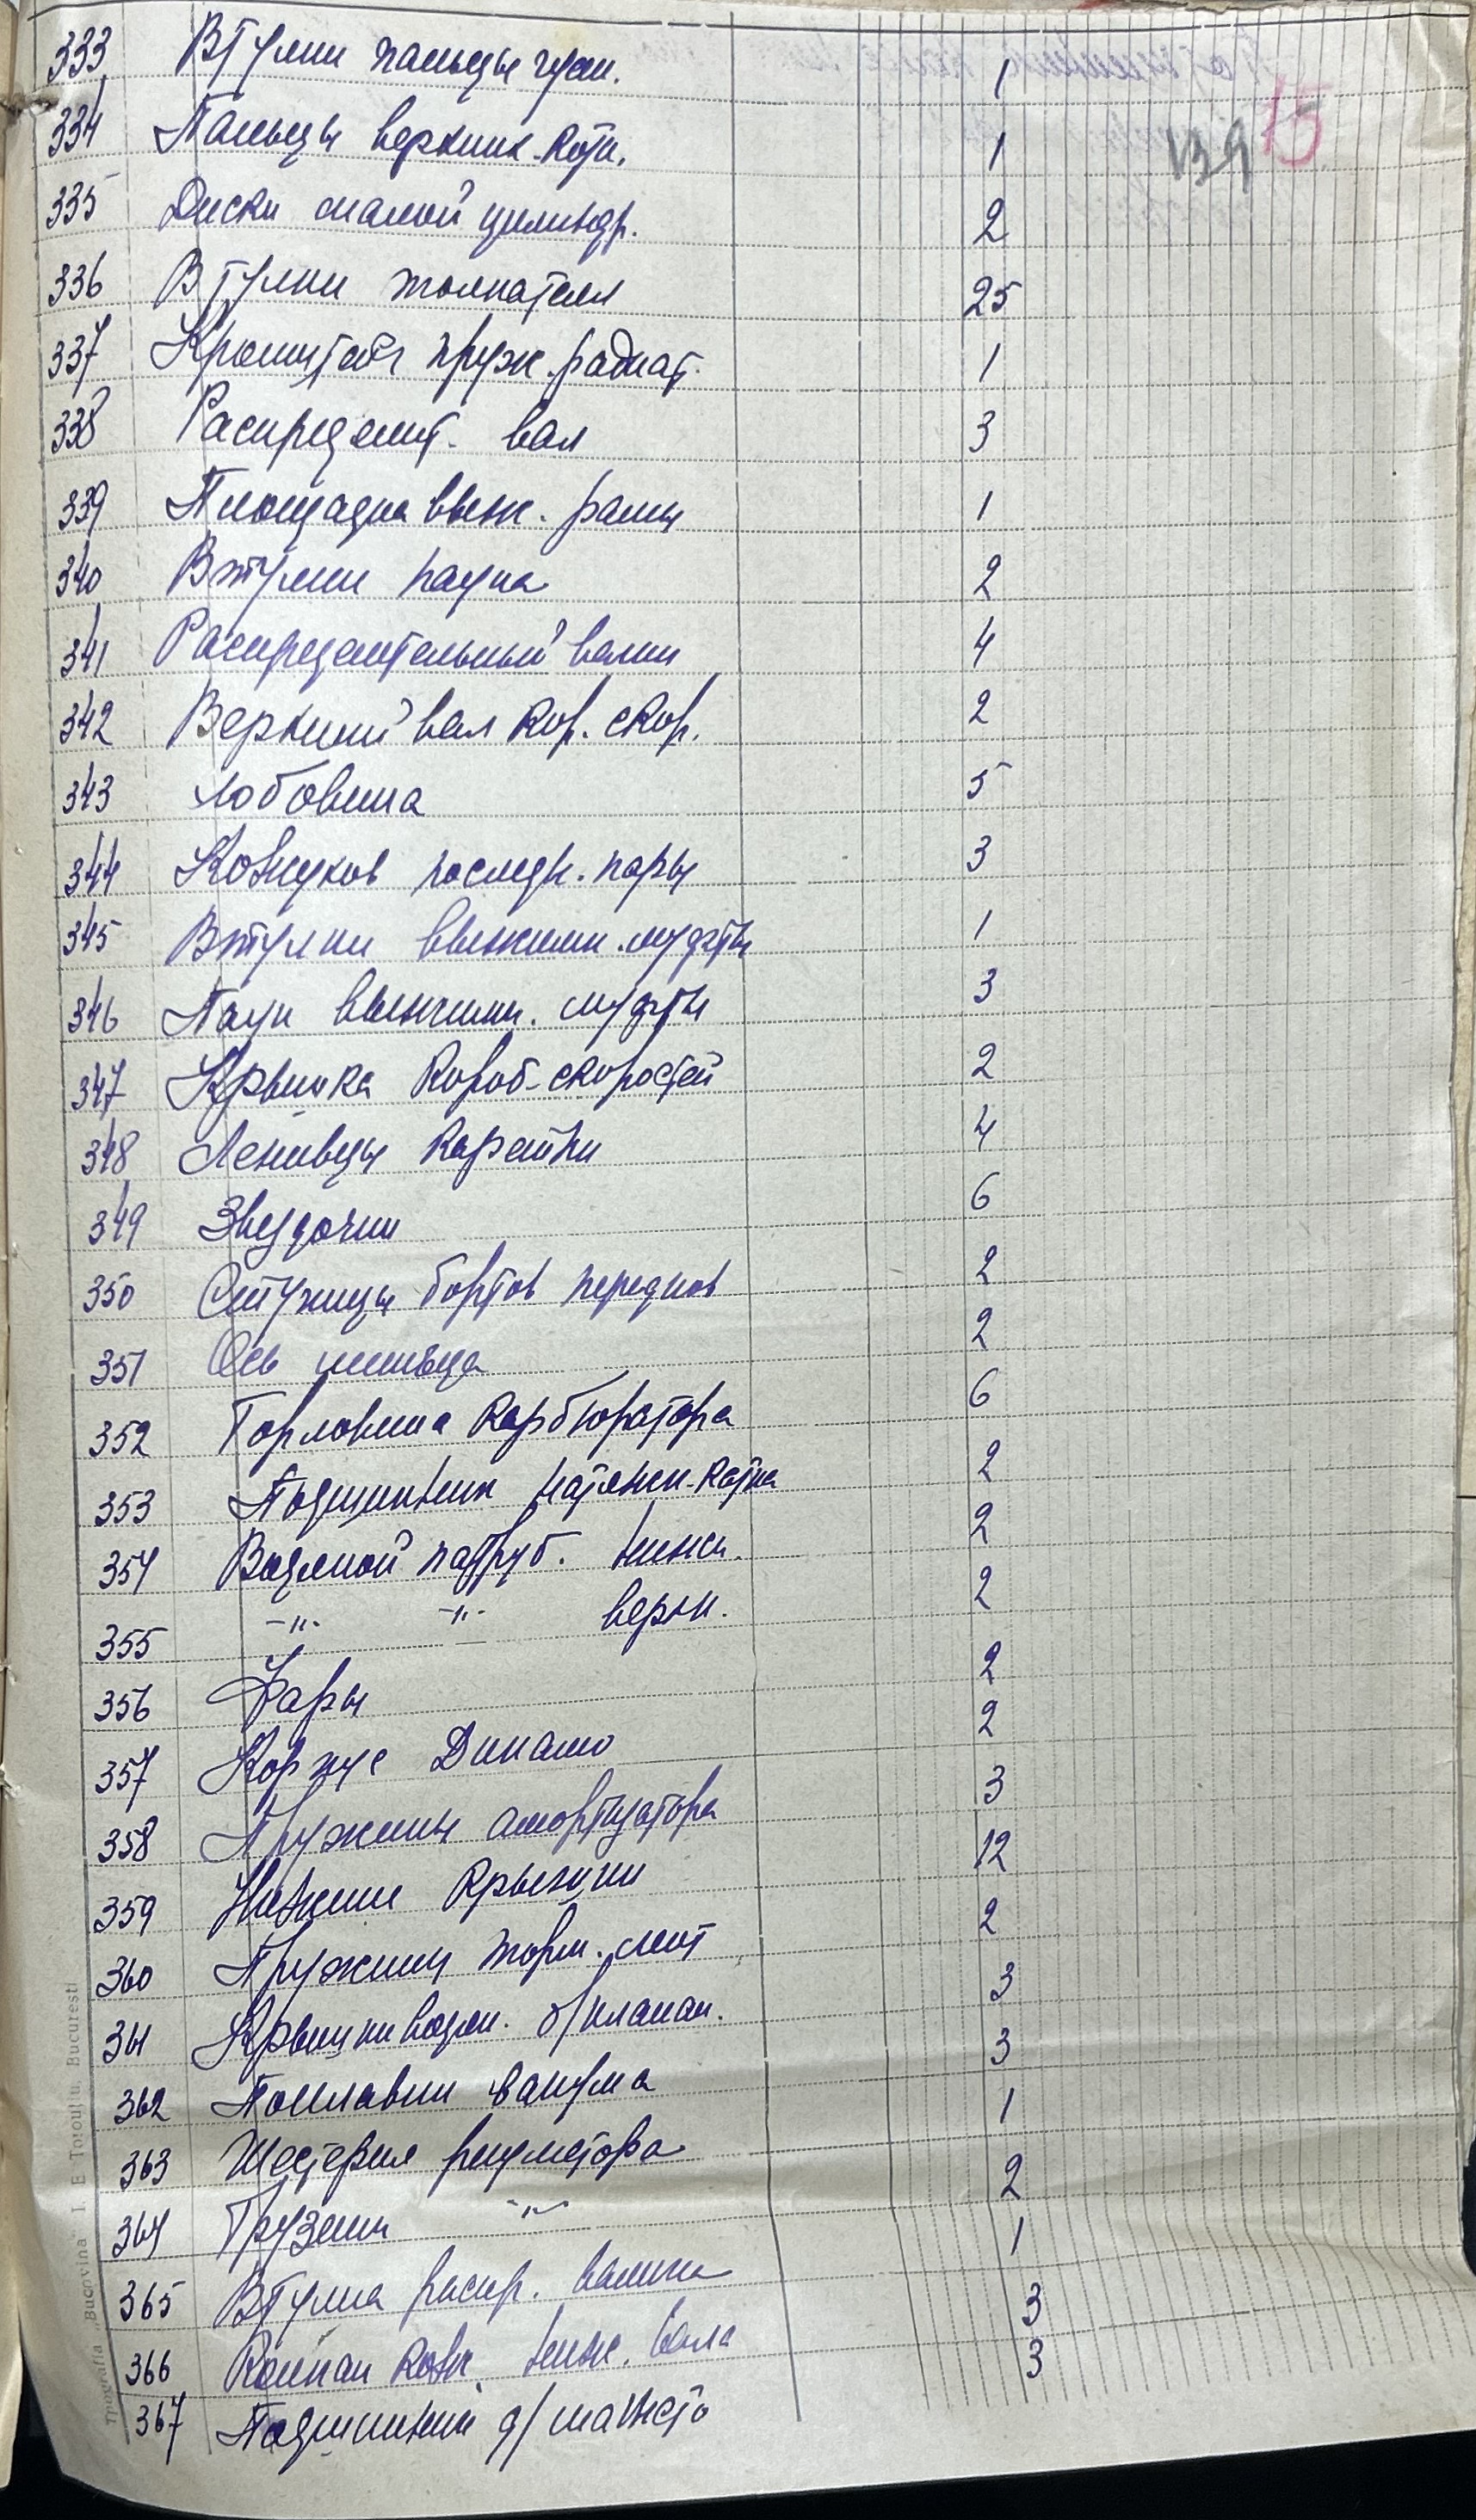 333 Втулки пальцы гусен. 1
334 Пальцы верхних катк. 1
335 Диски малой цилиндр. 2
336 Втулки толкателя 25
337 Кронштейн пруж. радиат. 1
338 Распределит. вал 3
339 Площадка выж. рамы 1
340 Втулки паука 2
341 Распределительный валик 4
342 Верхний вал кор. скор. 2
343 Лобовина 5
344 Кожухов последн. пары 3
345 Втулки выжимн. муфты 1
346 Паук выжимн. муфты 3
347 Крышка короб-скоростей 2
348 Ленивцы каретки 4
349 Звездочки 6
350 Ступицы бортов передков 2
351 Ось ленивца 2
352 Горловина карбюратора 6
353 Подшипник натяжн-катка 2
354 Водяной патруб. нижн. 2
355 -"- -"- верхн. 2
356 Фары 2
357 Корпус Динамо 2
358 Пружины амортизатора 3
359 Нижние крышки 12
360 Пружины торм. лент 2
361 Крышки водян. б/клапан. 3
362 Поплавки вакума 3
363 Шестерня регулятора 1
364 Грузики -"- 2
365 Втулка распр. валика 1
366 Колпак кож. ниж. вала 3
367 Подшипники д/магнето 3
139 15
Tipografia „Bucovina" I. E. Torouțiu, Bucuresti